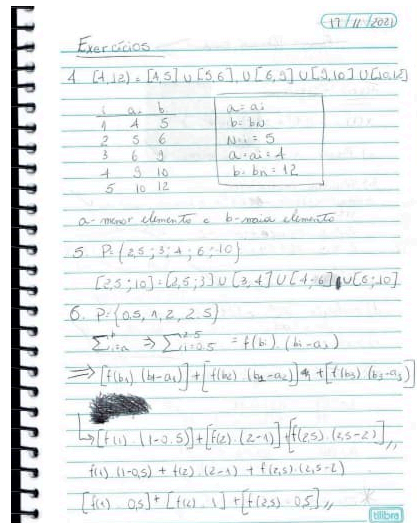 17/11/2021
Exercícios
4 [4,12) = [4,5] ∪ [5,6], ∪ [6,9] ∪ [9,10] ∪ [10,12]
i a b
1 4 5
2 5 6
3 6 9
4 9 10
5 10 12
a = ai
b = bN
N=i = 5
a = ai = 4
b = bn = 12
a - menor elemento e b - maia elemento
5. P= {2,5 ; 3 ; 4 ; 6 ; 10}
[2,5 ; 10] = [2,5 ; 3] ∪ [3,4] ∪ [4-6] ∪ [6 ; 10]
6. P= {0,5, 1, 2, 2,5}
∑ᵇᵢ₌ₐ ⇒ ∑²·⁵ᵢ₌₀.₅ = f(bi) . (bi-ai)
⇒ [f(b₁) (b₁-a₁)] + [f(b₂) . (b₂-a₂)] + [f(b₃) (b₃-a₃)]
↳ [f(1) . (1-0,5)] + [f(2) . (2-1)] + [f(2,5) . (2,5-2)],,
f(1) . (1-0,5) + f(2) . (2-1) + f(2,5) . (2,5-2)
[f(1) . 0,5] + [f(2) . 1] + [f(2,5) . 0,5],,
tilibra